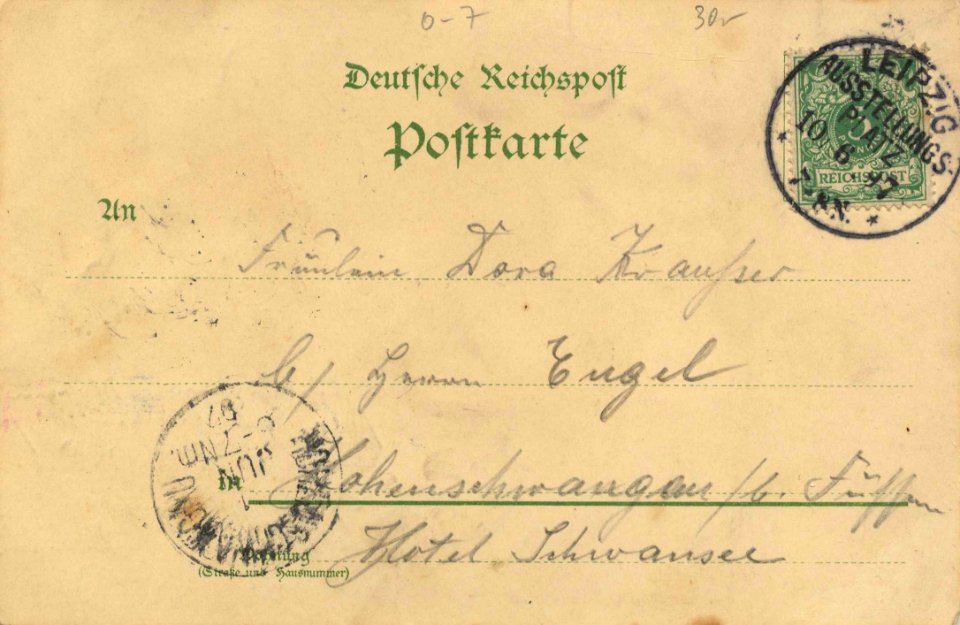 0-7 30,-
Deutsche Reichspost
Postkarte
LEIPZIG
AUSSTELLUNGS
PLATZ
10 6 97
7-8N.
5
REICHSPOST
An
Fräulein Dora Krausser
b/ Herrn Engel
in Hohenschwangau /b. Füssen
Hotel Schwansee
Wohnung
(Straße und Hausnummer)
HOHENSCHWANGAU
JUN
97